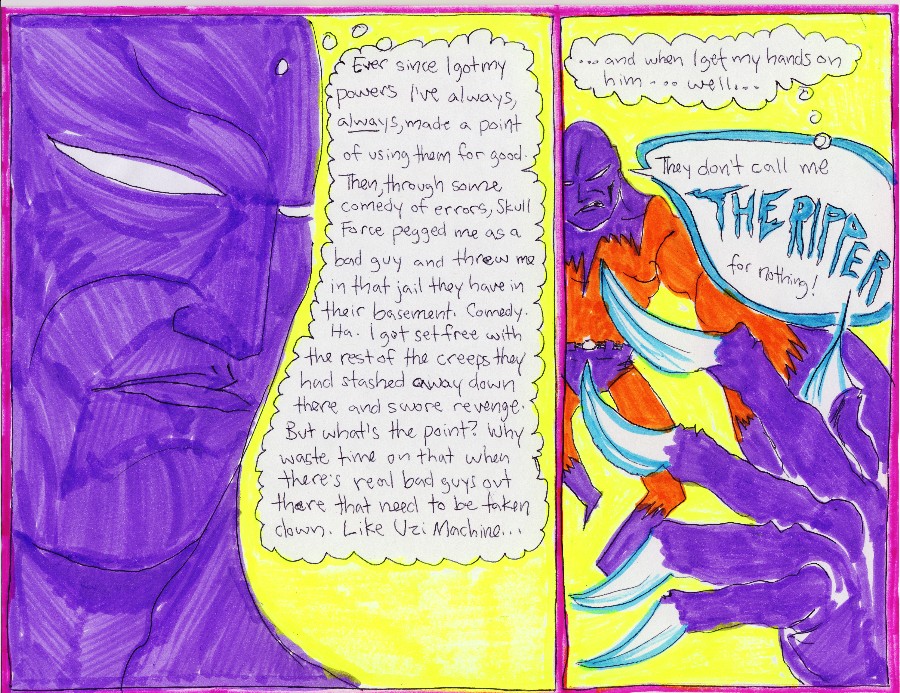 Ever since I got my
powers I've always,
always, made a point
of using them for good.
Then, through some
comedy of errors, Skull
Force pegged me as a
bad guy and threw me
in that jail they have in
their basement. Comedy.
Ha. I got set free with
the rest of the creeps they
had stashed away down
there and swore revenge.
But what's the point? Why
waste time on that when
there's real bad guys out
there that need to be taken
down. Like Uzi Machine...
... and when I get my hands on
him... well...
They don't call me
THE RIPPER
for nothing!